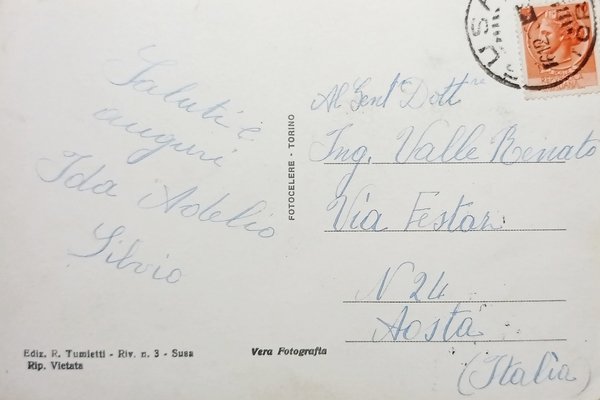 Saluti e
auguri
Ida Adelio
Silvio
FOTOCELERE - TORINO
Al Gent. Dott.
Ing. Valle Renato
Via Festaz
N 24
Aosta
(Italia)
Ediz. R. Tumietti - Riv. n. 3 - Susa
Rip. Vietata
Vera Fotografia
SUSA